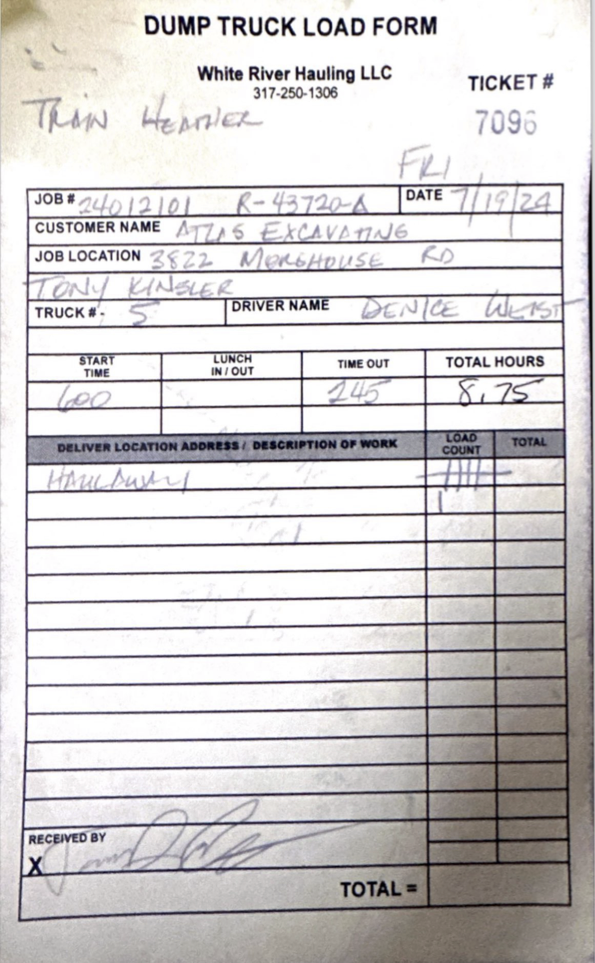 DUMP TRUCK LOAD FORM
White River Hauling LLC
317-250-1306
TICKET #
7096
TRAIN HEATHER
FRI
JOB # 24012101 R-43720-A DATE 7/19/24
CUSTOMER NAME ATLAS EXCAVATING
JOB LOCATION 3822 MOREHOUSE RD
TONY KINSLER
TRUCK #- 5 DRIVER NAME DENICE WEIST
START TIME LUNCH IN / OUT TIME OUT TOTAL HOURS
600 245 8.75
DELIVER LOCATION ADDRESS / DESCRIPTION OF WORK LOAD COUNT TOTAL
HAULAWAY
RECEIVED BY
X
TOTAL =